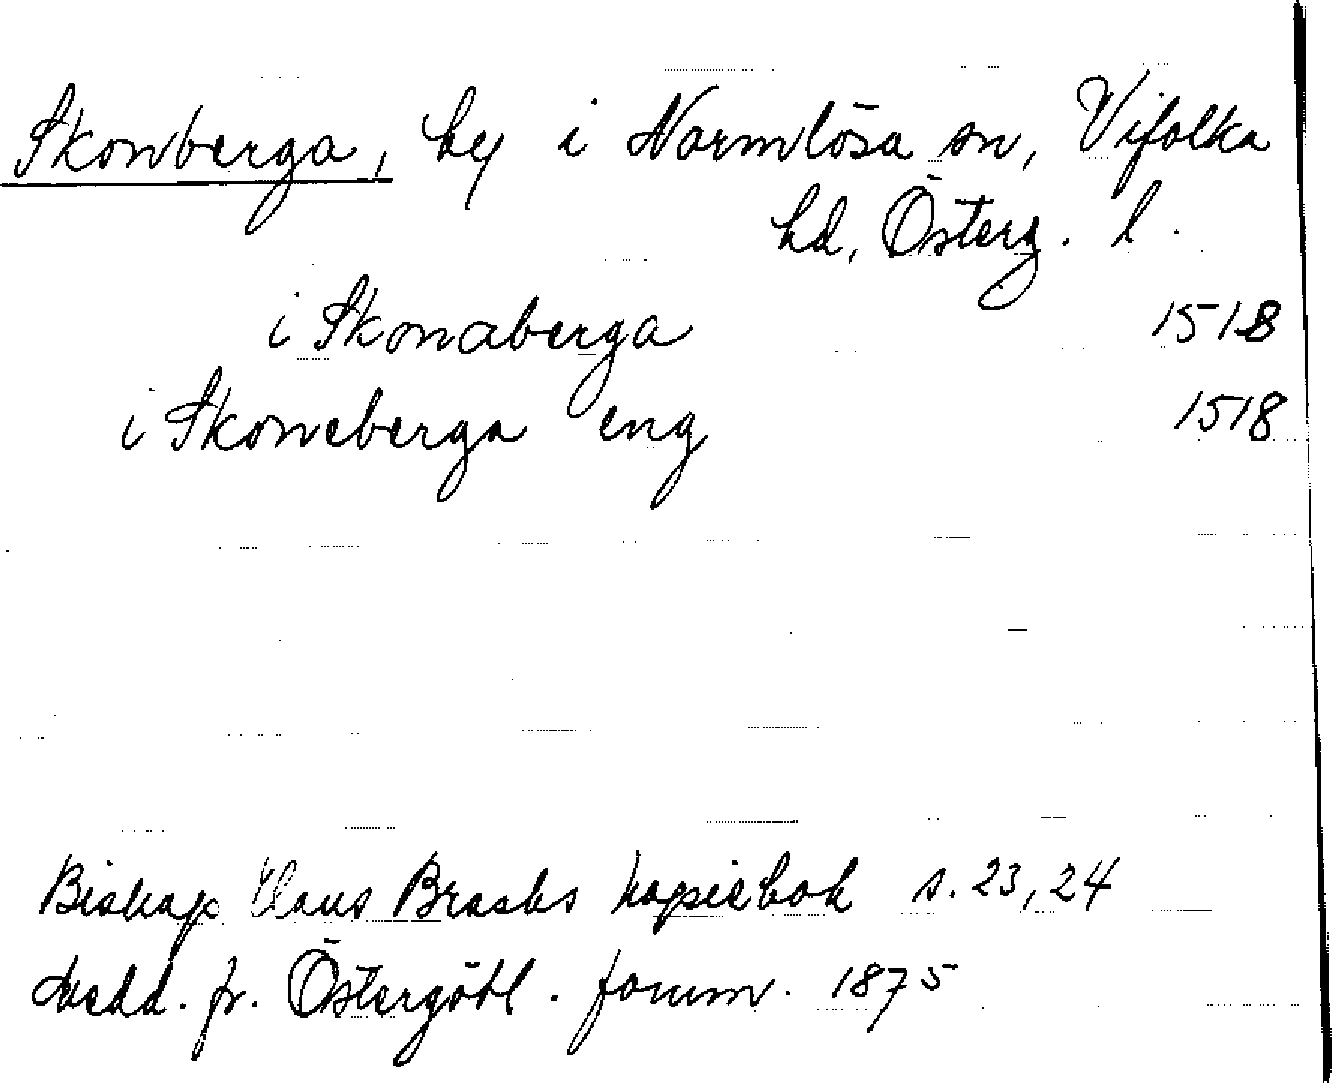 Skonberga, by i Normlösa sn, Vifolka
hd, Österg. l.
i Skonaberga 1518
i Skoneberga eng 1518
Biskop Hans Brasks kopiebok s. 23, 24
Medd. fr. Östergötl. fornm. 1875